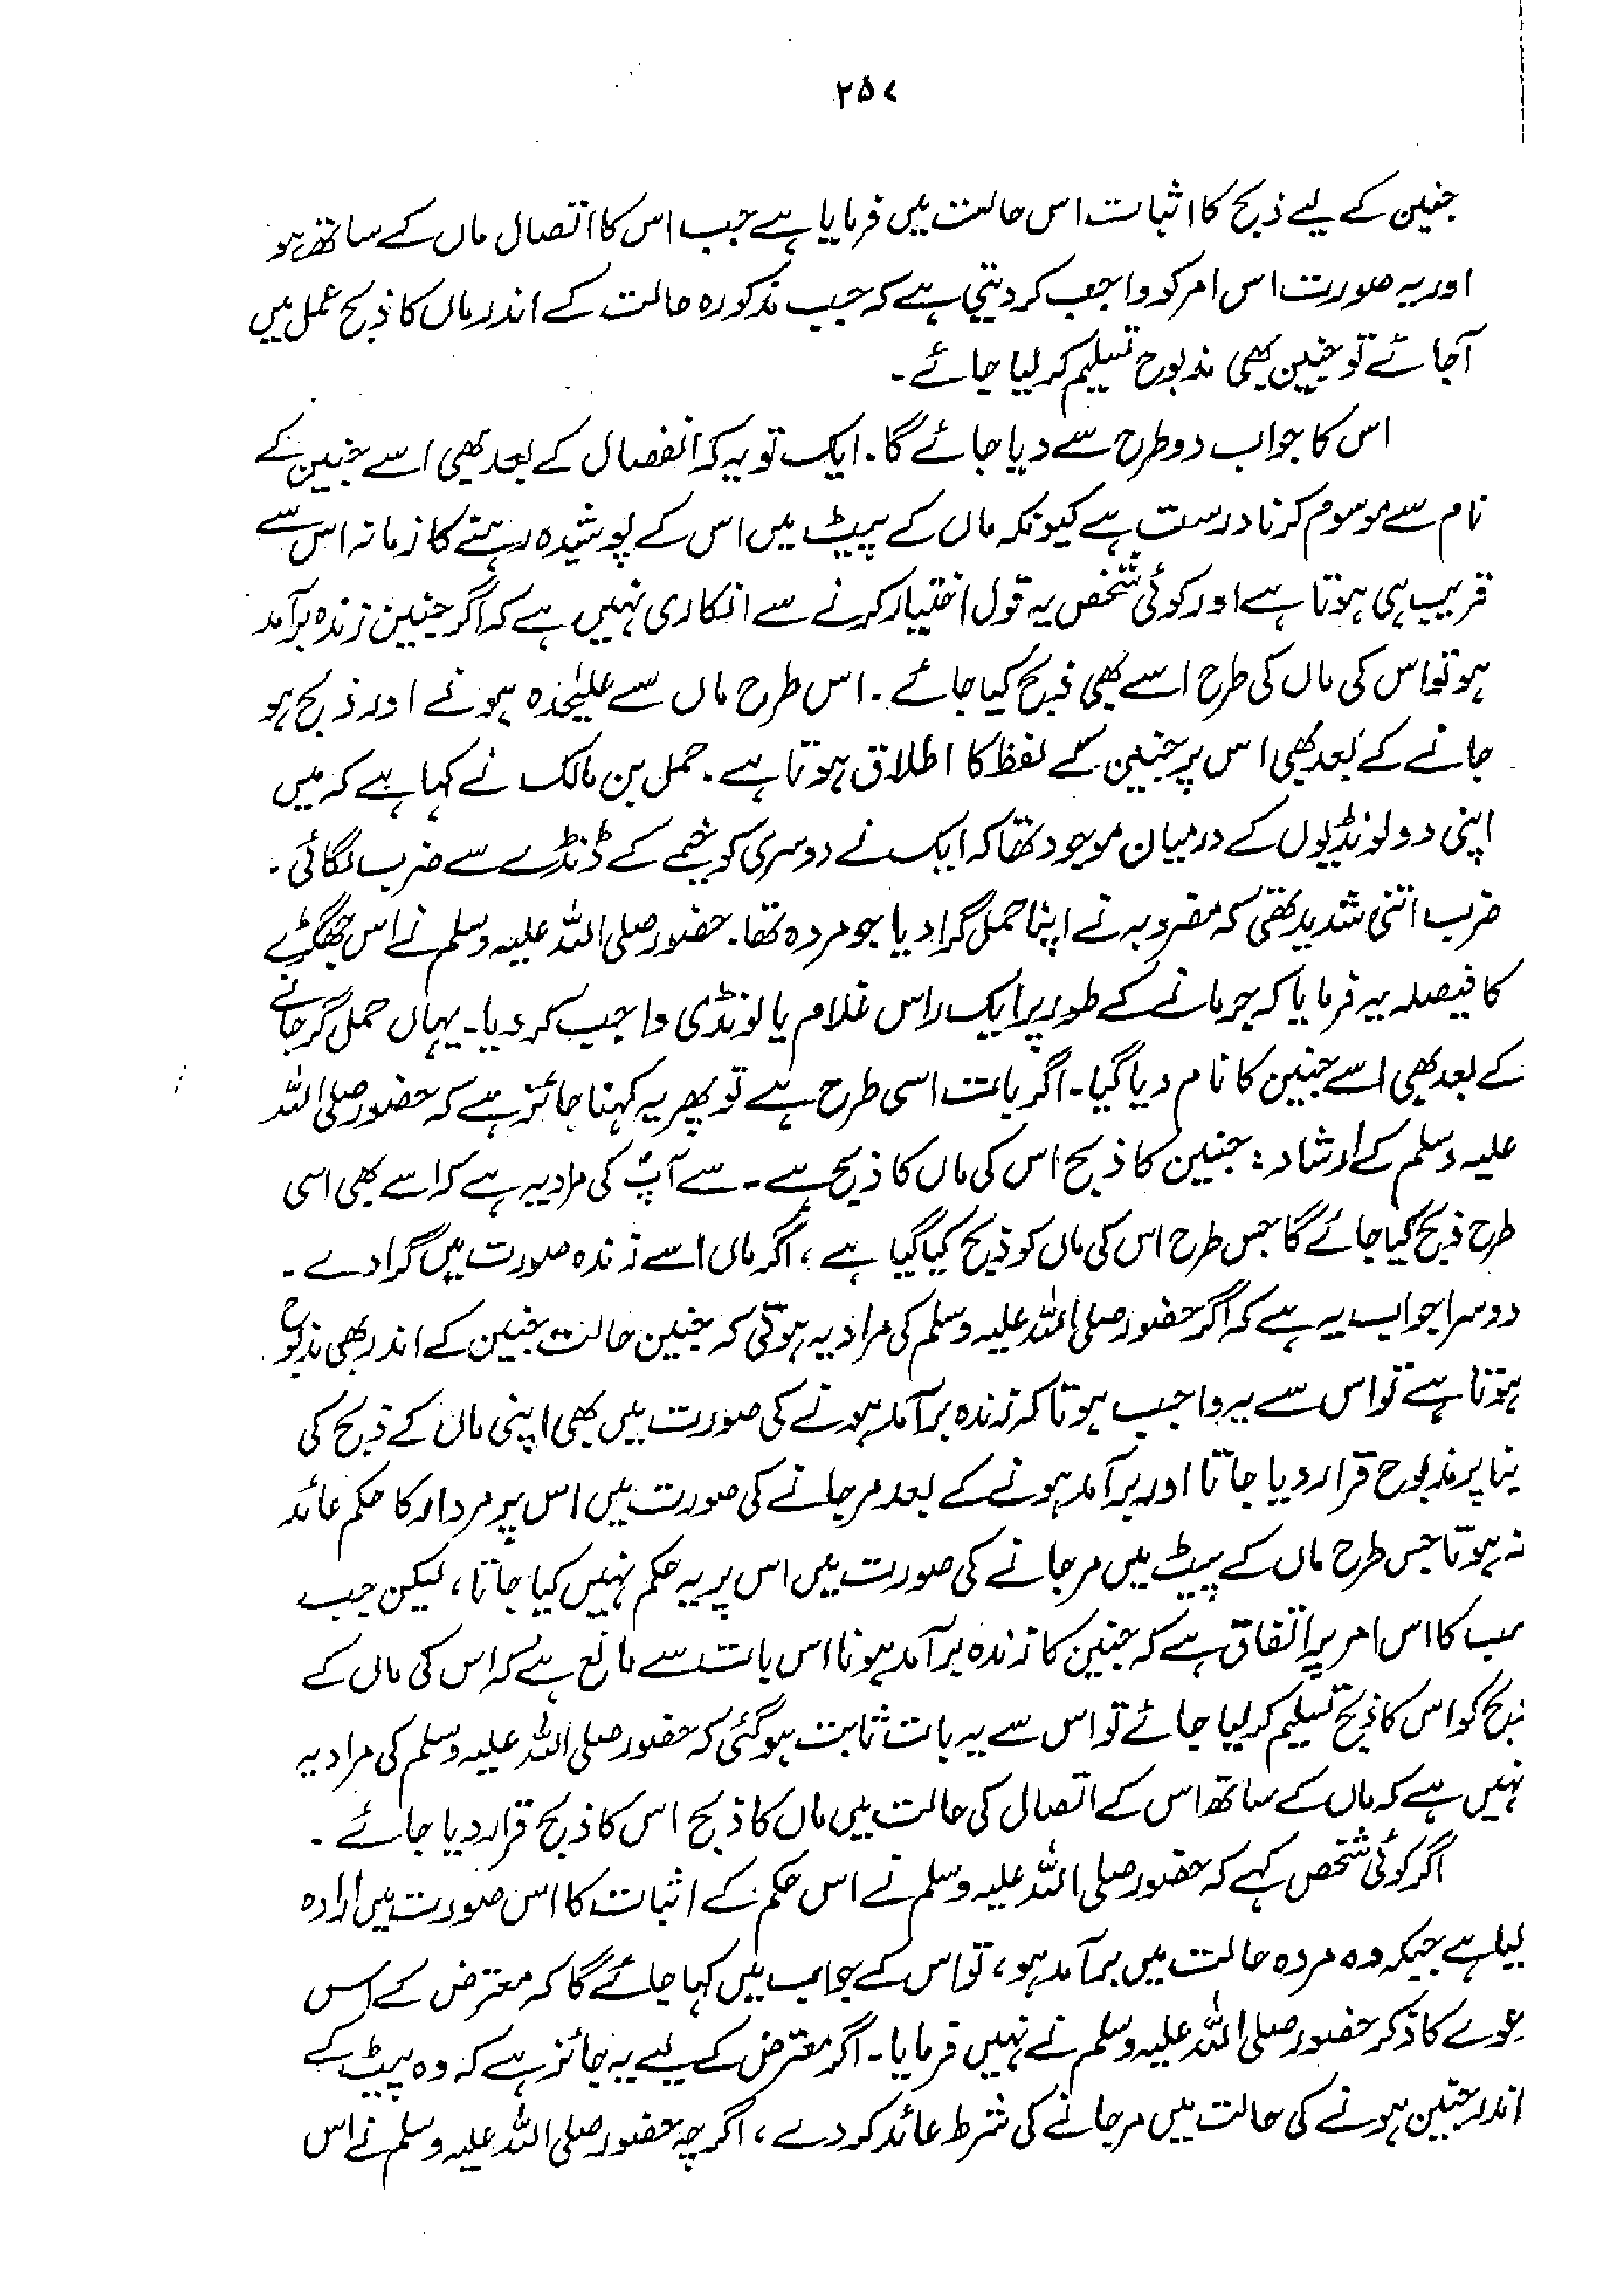 ۲۵۷
جنین کے لیے ذبح کا اثبات اس حالت میں فرمایا ہے جب اس کا اتصال ماں کے ساتھ ہو
اور یہ صورت اس امر کو واجب کر دیتی ہے کہ جب مذکورہ حالت کے اندر ماں کا ذبح عمل میں
آ جائے تو جنین بھی مذبوح تسلیم کر لیا جائے۔
اس کا جواب دو طرح سے دیا جائے گا۔ ایک تو یہ کہ انفصال کے بعد بھی اسے جنین کے
نام سے موسوم کرنا درست ہے کیونکہ ماں کے پیٹ میں اس کے پوشیدہ رہنے کا زمانہ اس سے
قریب ہی ہوتا ہے اور کوئی شخص یہ قول اختیار کرنے سے انکاری نہیں ہے کہ اگر جنین زندہ برآمد
ہو تو اس کی ماں کی طرح اسے بھی ذبح کیا جائے۔ اس طرح ماں سے علیٰحدہ ہونے اور ذبح ہو
جانے کے بعد بھی اس پر جنین کے لفظ کا اطلاق ہوتا ہے۔ حمل بن مالک نے کہا ہے کہ میں
اپنی دو لونڈیوں کے درمیان موجود تھا کہ ایک نے دوسری کو خیمے کے ڈنڈے سے ضرب لگائی۔
ضرب اتنی شدید تھی کہ مضروبہ نے اپنا حمل گرا دیا جو مردہ تھا۔ حضور صلی اللہ علیہ وسلم نے اس جھگڑے
کا فیصلہ یہ فرمایا کہ جرمانے کے طور پر ایک راس غلام یا لونڈی واجب کر دیا۔ یہاں حمل گر جانے
کے بعد بھی اسے جنین کا نام دیا گیا۔ اگر بات اسی طرح ہے تو پھر یہ کہنا جائز ہے کہ حضور صلی اللہ
علیہ وسلم کے ارشاد : جنین کا ذبح اس کی ماں کا ذبح ہے۔ سے آپؐ کی مراد یہ ہے کہ اسے بھی اسی
طرح ذبح کیا جائے گا جس طرح اس کی ماں کو ذبح کیا گیا ہے، اگر ماں اسے زندہ صورت میں گرا دے۔
دوسرا جواب یہ ہے کہ اگر حضور صلی اللہ علیہ وسلم کی مراد یہ ہوتی کہ جنین حالت جنین کے اندر بھی مذبوح
ہوتا ہے تو اس سے یہ واجب ہوتا کہ زندہ برآمد ہونے کی صورت میں بھی اپنی ماں کے ذبح کی
بنا پر مذبوح قرار دیا جاتا اور برآمد ہونے کے بعد مر جانے کی صورت میں اس پر مردار کا حکم عائد
نہ ہوتا جس طرح ماں کے پیٹ میں مر جانے کی صورت میں اس پر یہ حکم نہیں کیا جاتا، لیکن جب
سب کا اس امر پر اتفاق ہے کہ جنین کا زندہ برآمد ہونا اس بات سے مانع ہے کہ اس کی ماں کے
ذبح کو اس کا ذبح تسلیم کر لیا جائے تو اس سے یہ بات ثابت ہو گئی کہ حضور صلی اللہ علیہ وسلم کی مراد یہ
نہیں ہے کہ ماں کے ساتھ اس کے اتصال کی حالت میں ماں کا ذبح اس کا ذبح قرار دیا جائے۔
اگر کوئی شخص کہے کہ حضور صلی اللہ علیہ وسلم نے اس حکم کے اثبات کا اس صورت میں ارادہ
لیا ہے جبکہ وہ مردہ حالت میں برآمد ہو، تو اس کے جواب میں کہا جائے گا کہ معترض کے اس
دعوے کا ذکر حضور صلی اللہ علیہ وسلم نے نہیں فرمایا۔ اگر معترض کے لیے یہ جائز ہے کہ وہ پیٹ کے
اندر جنین ہونے کی حالت میں مر جانے کی شرط عائد کر دے، اگرچہ حضور صلی اللہ علیہ وسلم نے اس